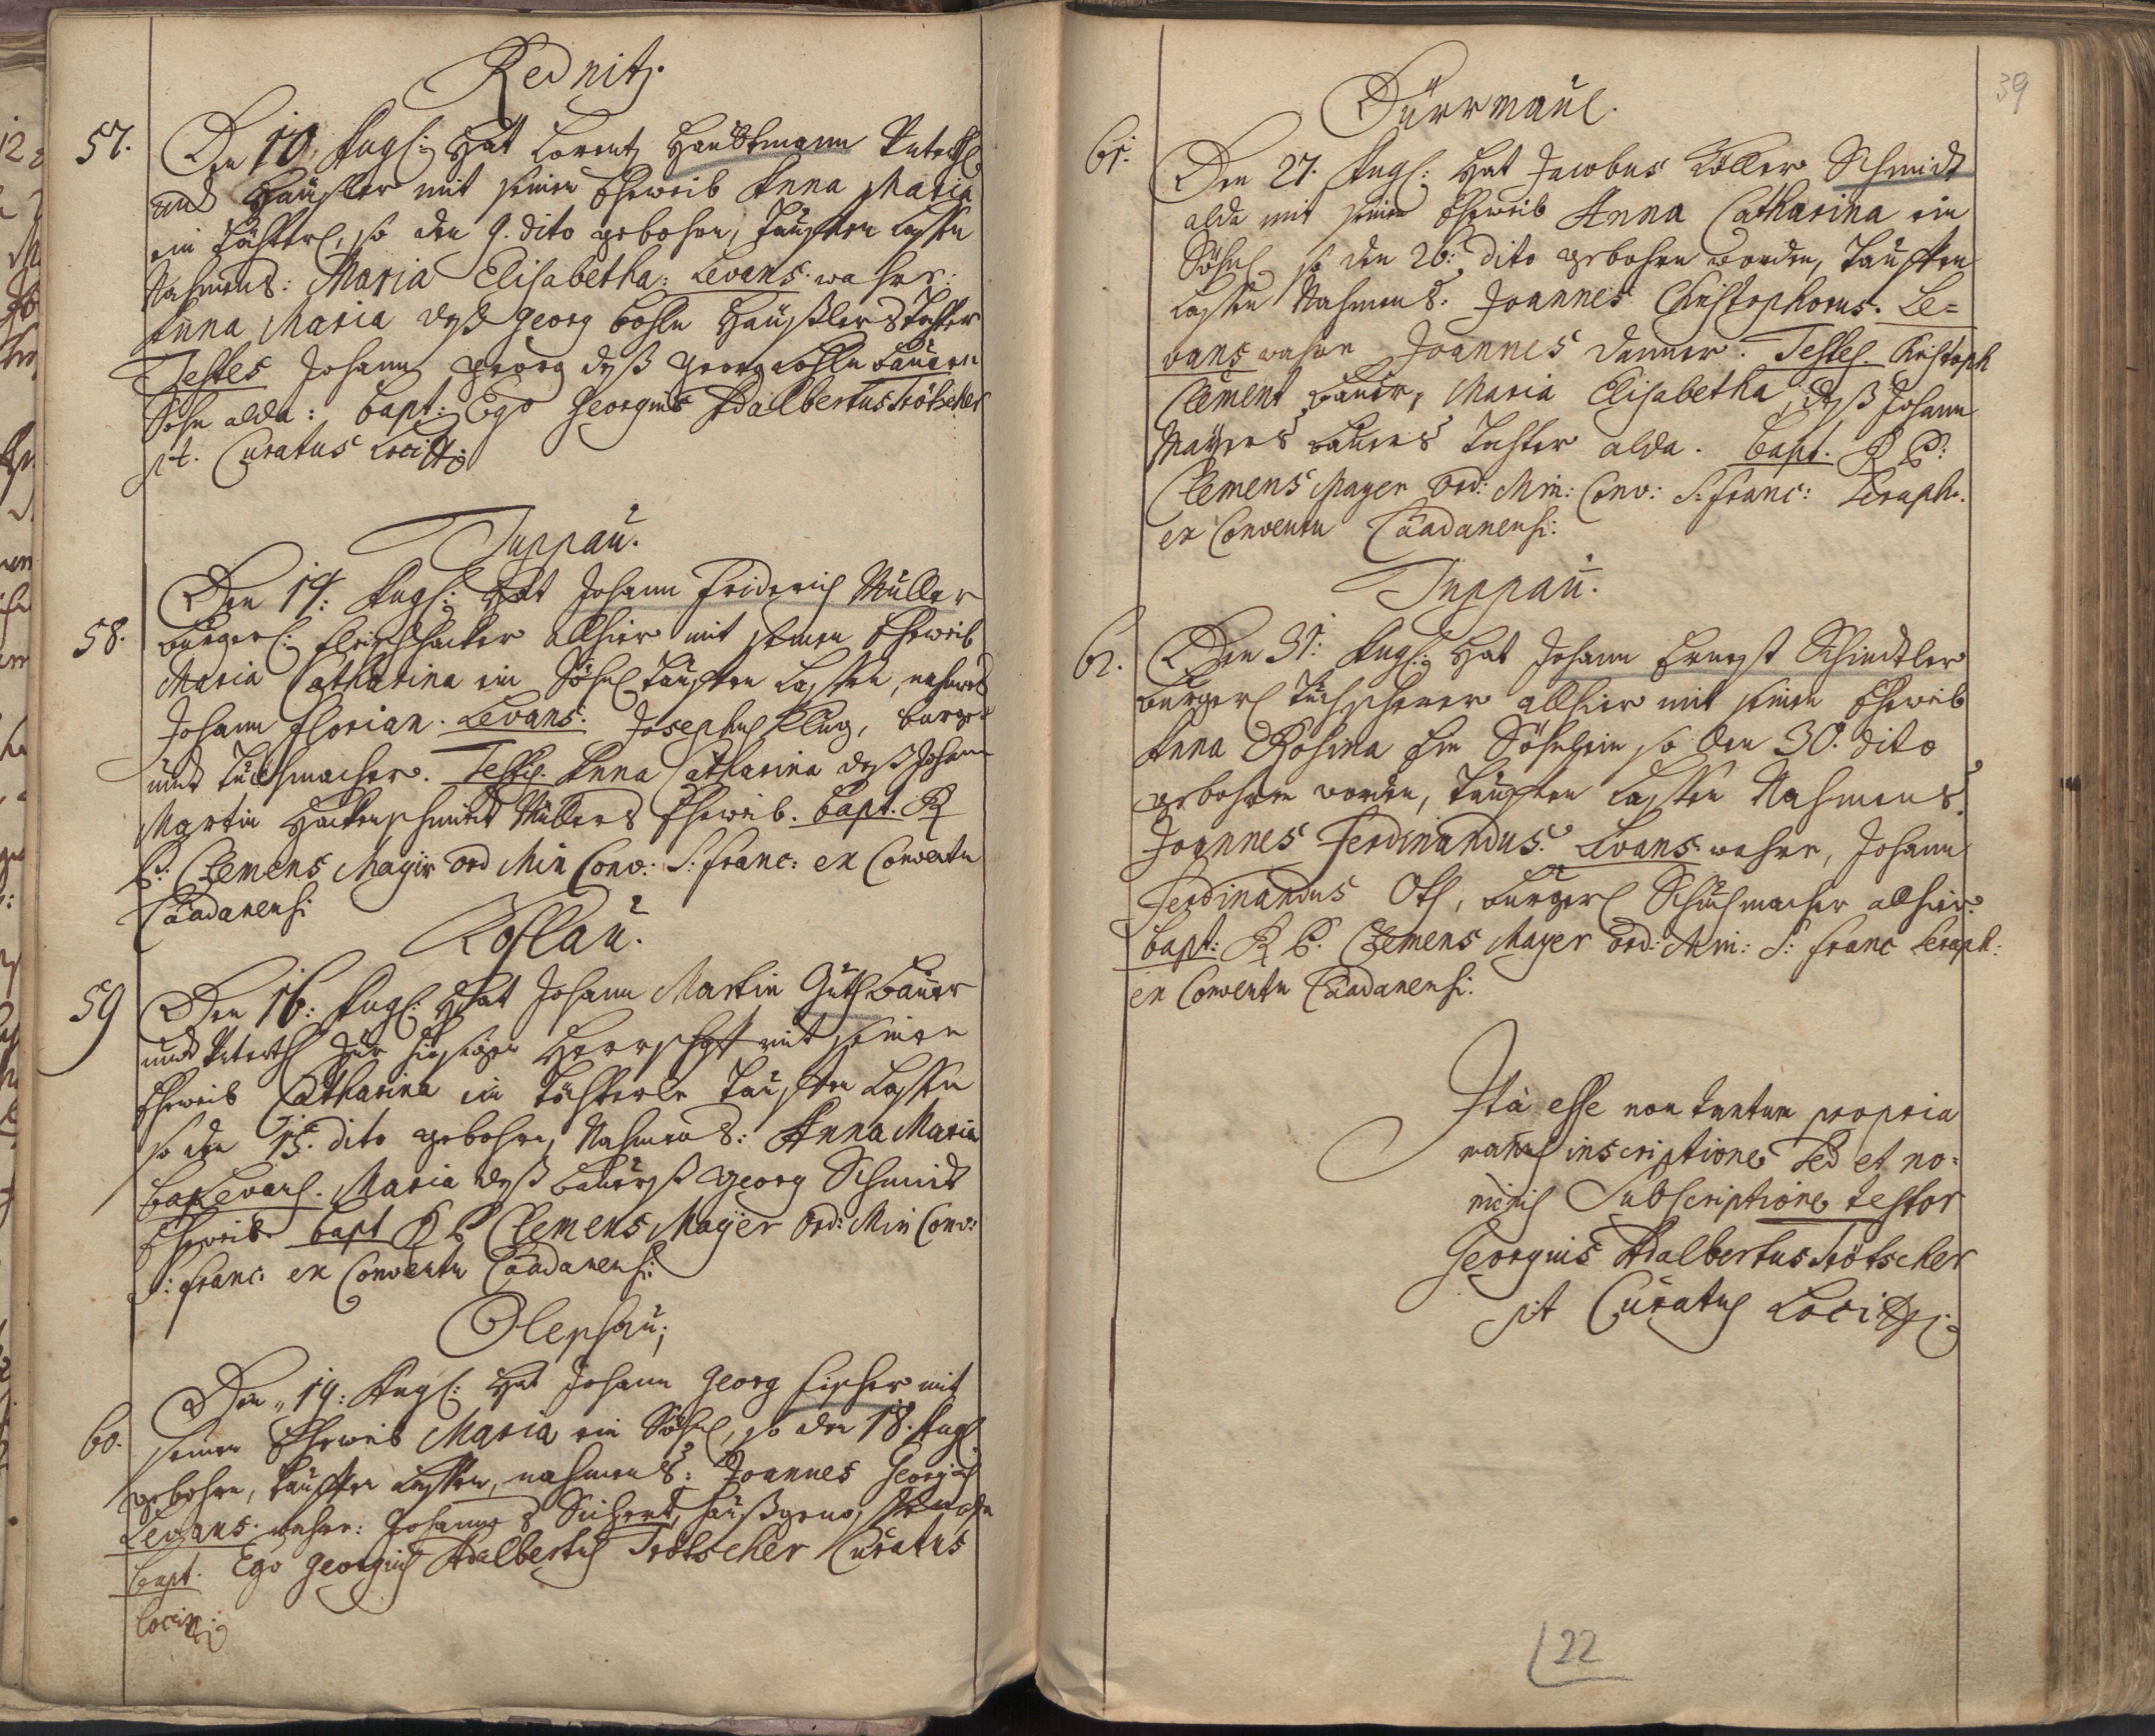 Rednitz.
57.
Den 10 Augs: Hat Lorentz Haubtmann Unterth:
und Häußler mit seinen Eheweib Anna Maria
ein Töchterl, so den 9. dito gebohren, tauffen lassen
Nahmens: Maria Elisabetha: Levans. wahre:
Anna Maria deß Georg Bohln Häußlers Tochter
Testes Johann Georg deß Georg Bohln Bauern
Sohn alda: bapt: Ego Georgius Adalbertus Trötscher
pt. Curatus Loci
Duppau.
58.
Den 14: Augs: Hat Johann Friderich Müller
Burgerl: Fleischhacker allhier mit seinen Eheweib
Maria Catharina ein Söhnl tauffen lassen, nahmens
Johann Florian. Levans. Josephus Klug, burger
undt Tuchmacher. Testis. Anna Catharina deß Johann
Martin Hackenschmidt Müllers Eheweib. bapt. R
P: Clemens Mayer Ord Min Conv: S: Franc: ex Conventu
Caadanensi
Koslau.
59
Den 16: Augs: Hat Johann Martin Guth Bauer
undt Unterth zur hiesigen Herrschafft mit seinen
Eheweib Catharina ein Töchterle tauffen lassen
so den 15. dito gebohren, Nahmens: Anna Maria
Levans. Maria deß Bauerß Georg Schmidt
Eheweib. bapt R P Clemens Mayer Ord: Min Conv:
S: Franc: ex Conventu Caadanensi
Oleschau;
60.
Den 19: Augs: Hat Johann Georg Fischer mit
seinen Eheweib Maria ein Söhnl, so den 18. Augs
gebohren, tauffen lassen, nahmens: Joannes Georgius
Levans. wahre: Johannes Sichert, haußgenoß
bapt. Ego Georgius Adalbertus Trötscher Curatus
loci
39
Dürrmaul.
61.
Den 27. Augs: Hat Jacobus Köller Schmidt
alda mit seinen Eheweib Anna Catharina ein
Söhnl so den 26: dito gebohren worden, tauffen
lassen Nahmens: Joannes Christophorus. Le=
vans wahre Joannes Denner. Testes. Christoph
Clement Bauer, Maria Elisabetha deß Johann
Mayers Bauers Tochter alda. bapt. R P:
Clemens Mayer Ord: Min: Conv: S: Franc: Seraph.
ex Conventu Caadanensi:
Duppau.
62.
Den 31: Augs: Hat Johann Ernest Schindtler
Burgerl Tuchscherer allhier mit seinen Eheweib
Anna Rosina Ein Söhnlein so den 30. dito
gebohren worden, tauffen lassen Nahmens
Joannes Ferdinandus. Levans wahre, Johann
Ferdinandus Ott, Burgerl Schuhmacher allhier.
bapt: R P. Clemens Mayer Ord: Min: S: Franc Seraph:
ex Conventu Caadanensi.
Ita esse non tantum propria
manus inscriptione Sed et no=
minis Subscriptione testor
Georgius Adalbertus Trötscher
pt Curatus Loci
22